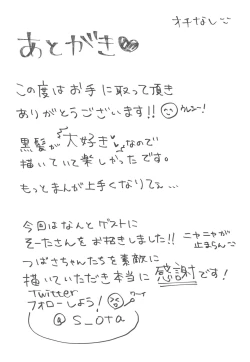 オチなし
あとがき
この度はお手に取って頂き
ありがとうございます!! ウレシー!
黒髪が大好きなので
描いていて楽しかったです。
もっとまんが上手くなりてぇ…
今回はなんとゲストに
そーたさんをお招きしました!! ニヤニヤが
止まらん
つばさちゃんたちを素敵に
描いていただき本当に感謝です!
Twitter
フォローしよう!
@s_ota